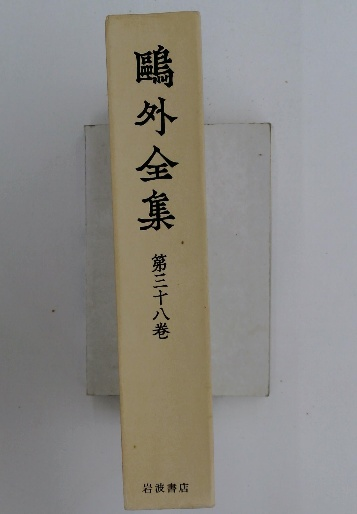 鷗外全集
第三十八巻
岩波書店